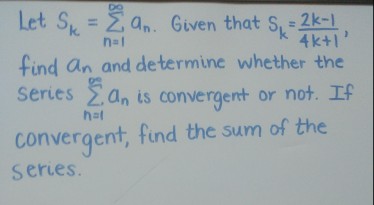 Let Sₖ = ∞∑n=1 aₙ. Given that Sₖ = (2k-1)/(4k+1),
find an and determine whether the
series ∞∑n=1 an is convergent or not. If
convergent, find the sum of the
series.